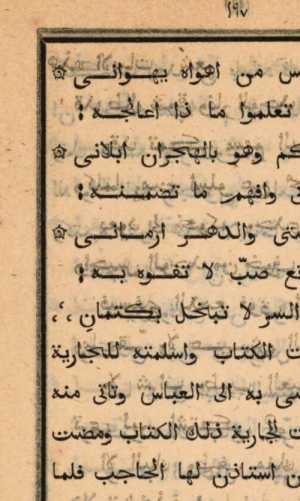 ١٩٧
من اهواه بهوانى
تعلموا ما ذا اعالجه
وهو بالهجران ابلانى
وافهم ما تضمنه
والدهر ازمانى
صبّ لا تفوه به
السر لا تبخل بكتمان
الكتاب واسلمته للجارية
به الى العباس وتاتى منه
الجارية ذلك الكتاب ومضت
استاذن لها الحاجب فلما